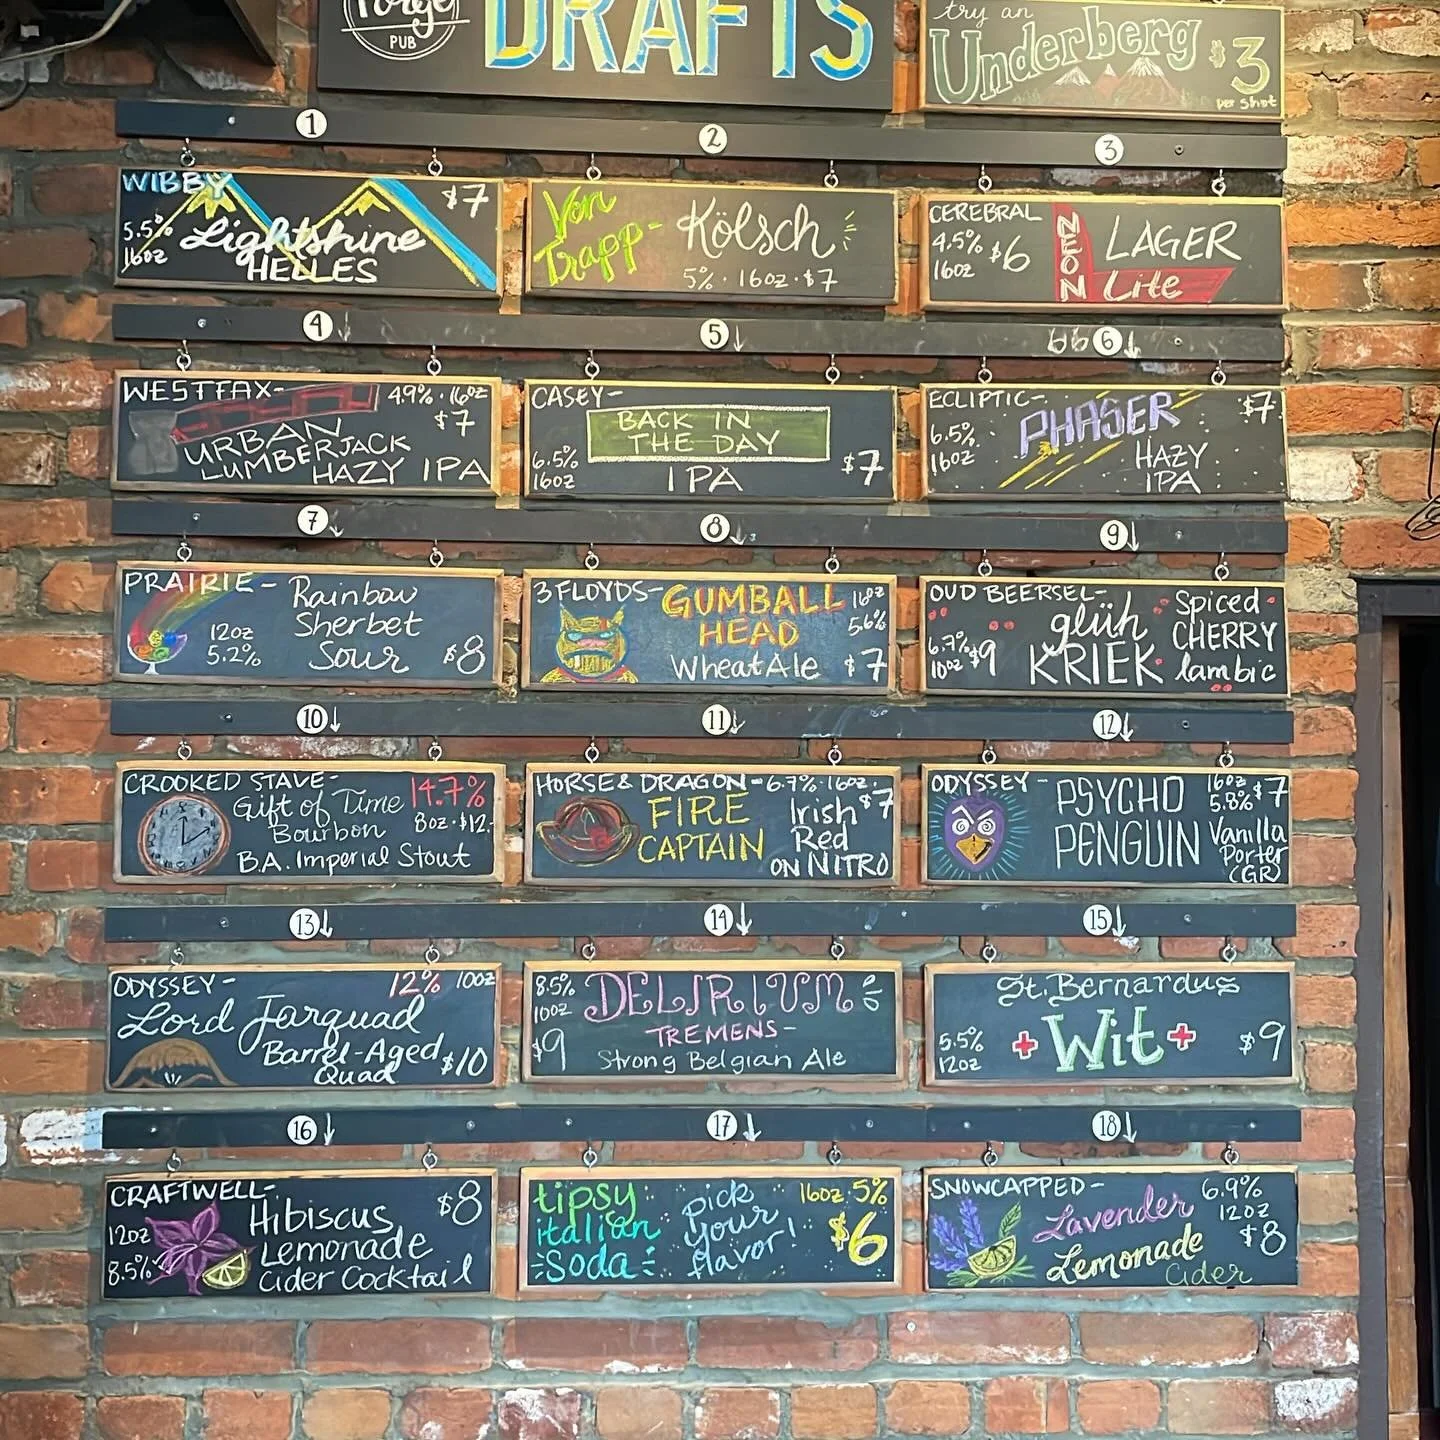 Forge
PUB
DRAFTS
try an
Underberg $3
per shot
1
2
3
WIBBY
$7
5.5%
16oz
Lightshine
HELLES
Von
Trapp-
Kölsch
5% · 16oz · $7
CEREBRAL
4.5%
16oz
$6
NEON
LAGER
Lite
4
5
6
WESTFAX-
4.9% · 16oz
$7
URBAN
LUMBERJACK
HAZY IPA
CASEY-
BACK IN
THE DAY
6.5%
16oz
IPA
$7
ECLIPTIC-
PHASER
$7
6.5%
16oz
HAZY
IPA
7
8
9
PRAIRIE-
Rainbow
Sherbet
Sour
12oz
5.2%
$8
3 FLOYDS-
GUMBALL
HEAD
Wheat Ale
16oz
5.6%
$7
OUD BEERSEL-
6.7%
10oz
$9
glüh
KRIEK
Spiced
CHERRY
lambic
10
11
12
CROOKED STAVE-
Gift of Time
Bourbon
B.A. Imperial Stout
14.7%
8oz · $12
HORSE & DRAGON - 6.7% · 16oz ·
FIRE
CAPTAIN
Irish
Red
ON NITRO
$7
ODYSSEY -
PSYCHO
PENGUIN
16oz
5.8%
$7
Vanilla
Porter
(GR)
13
14
15
ODYSSEY-
12% 10oz
Lord Jarquad
Barrel-Aged
Quad
$10
8.5%
10oz
$9
DELIRIUM
TREMENS-
Strong Belgian Ale
St. Bernardus
Wit
5.5%
12oz
$9
16
17
18
CRAFTWELL-
12oz
8.5%
Hibiscus
Lemonade
Cider Cocktail
$8
tipsy
italian
Soda
pick
your
flavor!
16oz 5%
$6
SNOWCAPPED-
Lavender
Lemonade
Cider
6.9%
12oz
$8